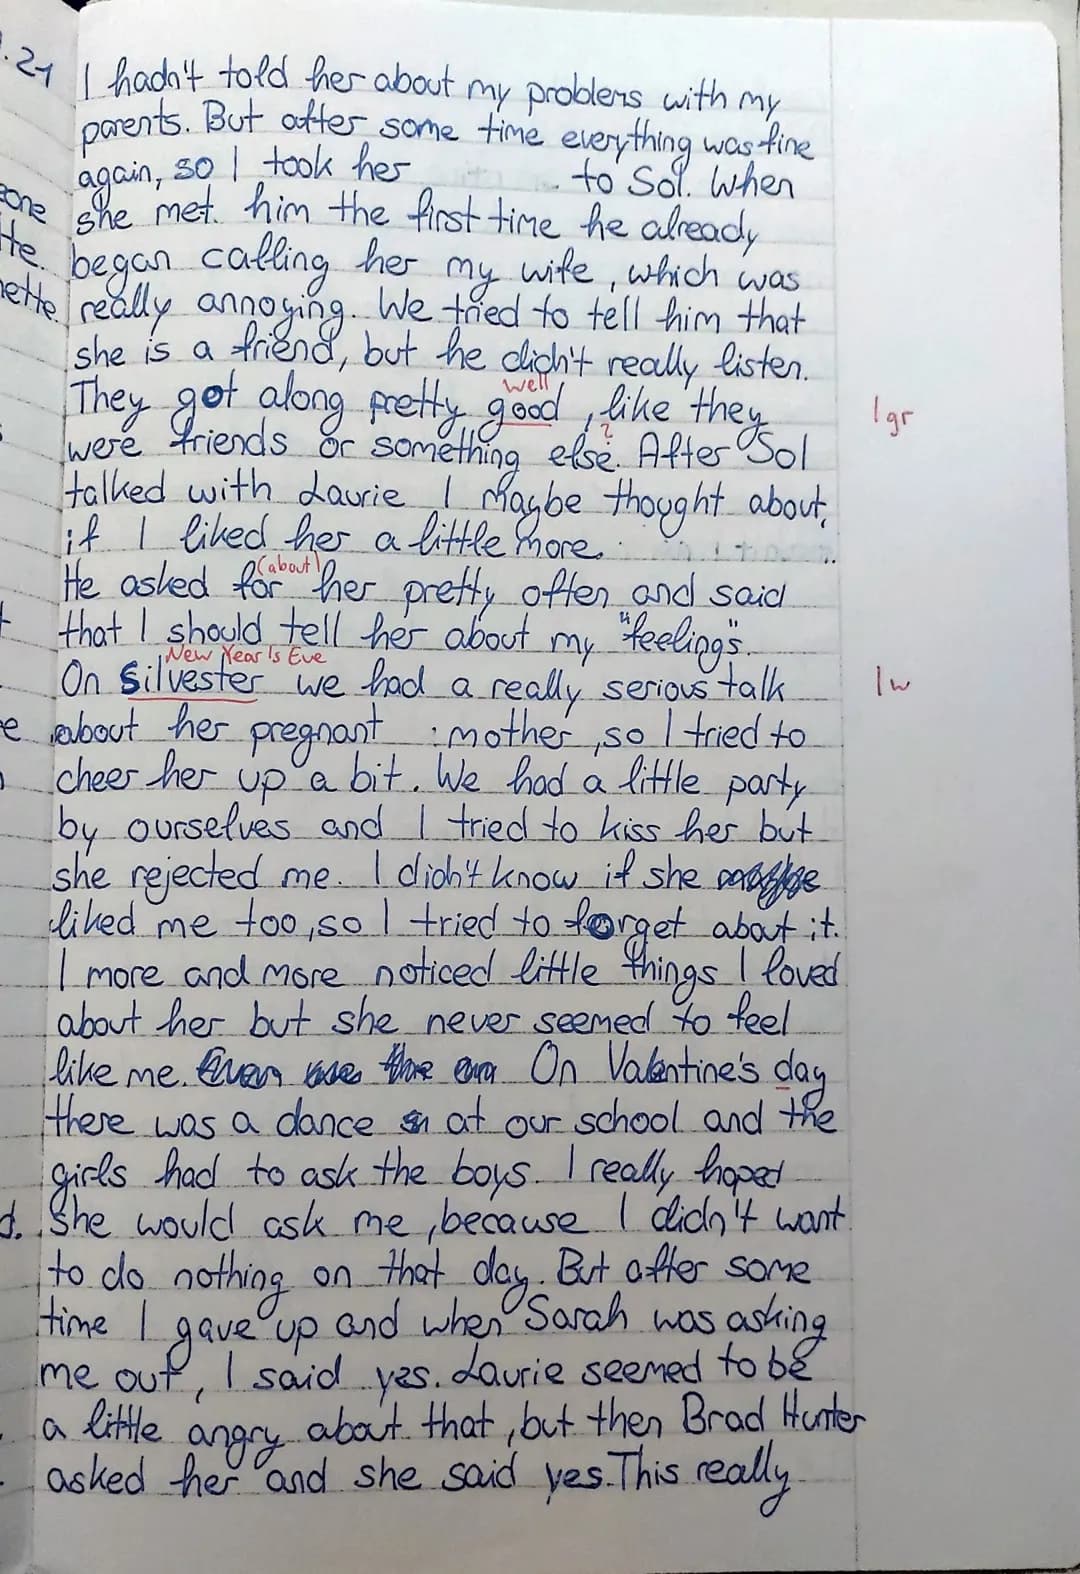 .21 I hadn't told her about my problems with my
parents. But after some time everything was fine
again, so I took her to Sol. When
she met him the first time he already
began calling her my wife, which was
really annoying. We tried to tell him that
she is a friend, but he didn't really listen.
well
They got along pretty good, like they 1gr
?
were friends or something else. After Sol
talked with Laurie I maybe thought about,
if I liked her a little more.
(about)
He asked for her pretty often and said
that I should tell her about my "feelings".
New Year's Eve
On Silvester we had a really serious talk 1w
about her pregnant mother, so I tried to
cheer her up a bit. We had a little party
by ourselves and I tried to kiss her but
she rejected me. I didn't know if she
liked me too, so I tried to forget about it.
I more and more noticed little things I loved
about her but she never seemed to feel
like me. On Valentine's day
there was a dance at our school and the
girls had to ask the boys. I really hoped
she would ask me, because I didn't want
to do nothing on that day. But after some
time I gave up and when Sarah was asking
me out, I said yes. Laurie seemed to be
a little angry about that, but then Brad Hunter
asked her and she said yes. This really